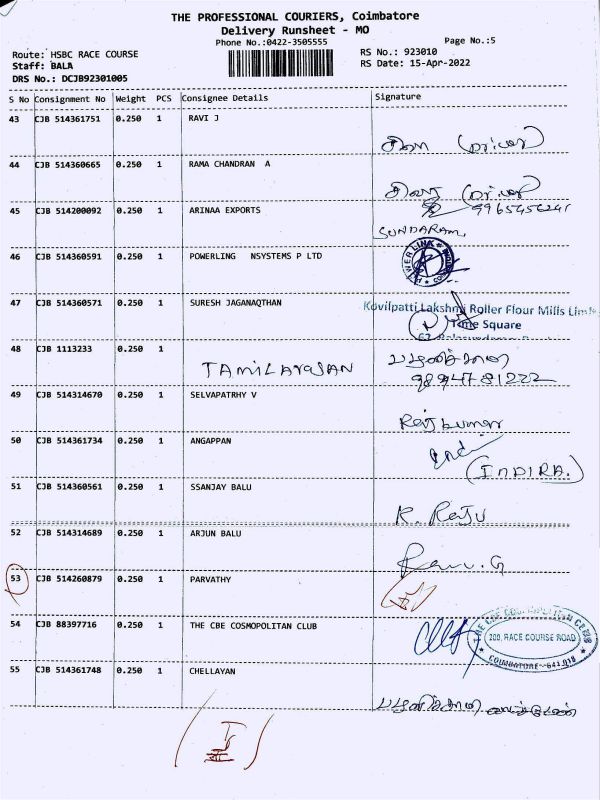 THE PROFESSIONAL COURIERS, Coimbatore
Delivery Runsheet - MO
Phone No.:0422-3505555
Page No.:5
Route: HSBC RACE COURSE
RS No.: 923010
Staff: BALA
RS Date: 15-Apr-2022
DRS No.: DCJB92301005
S No Consignment No Weight PCS Consignee Details Signature
43 CJB 514361751 0.250 1 RAVI J
44 CJB 514360665 0.250 1 RAMA CHANDRAN A
45 CJB 514200092 0.250 1 ARINAA EXPORTS
9965456241
SUNDARAM
46 CJB 514360591 0.250 1 POWERLING NSYSTEMS P LTD
47 CJB 514360571 0.250 1 SURESH JAGANAQTHAN
Kovilpatti Lakshmi Roller Flour Mills Limit
Time Square
48 CJB 1113233 0.250 1 TAMILARASAN
9894781222
49 CJB 514314670 0.250 1 SELVAPATRHY V
Rajkumar
50 CJB 514361734 0.250 1 ANGAPPAN
(INDIRA.)
51 CJB 514360561 0.250 1 SSANJAY BALU
K. Raju
52 CJB 514314689 0.250 1 ARJUN BALU
53 CJB 514260879 0.250 1 PARVATHY
54 CJB 88397716 0.250 1 THE CBE COSMOPOLITAN CLUB
THE CBE COSMOPOLITAN CLUB
200, RACE COURSE ROAD
COIMBATORE-641 018
55 CJB 514361748 0.250 1 CHELLAYAN